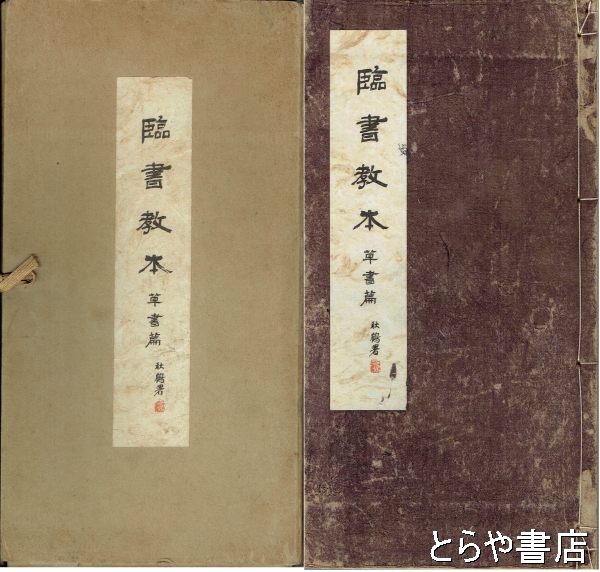 臨書教本 草書篇 秋鶴署
臨書教本 草書篇 秋鶴署
とらや書店